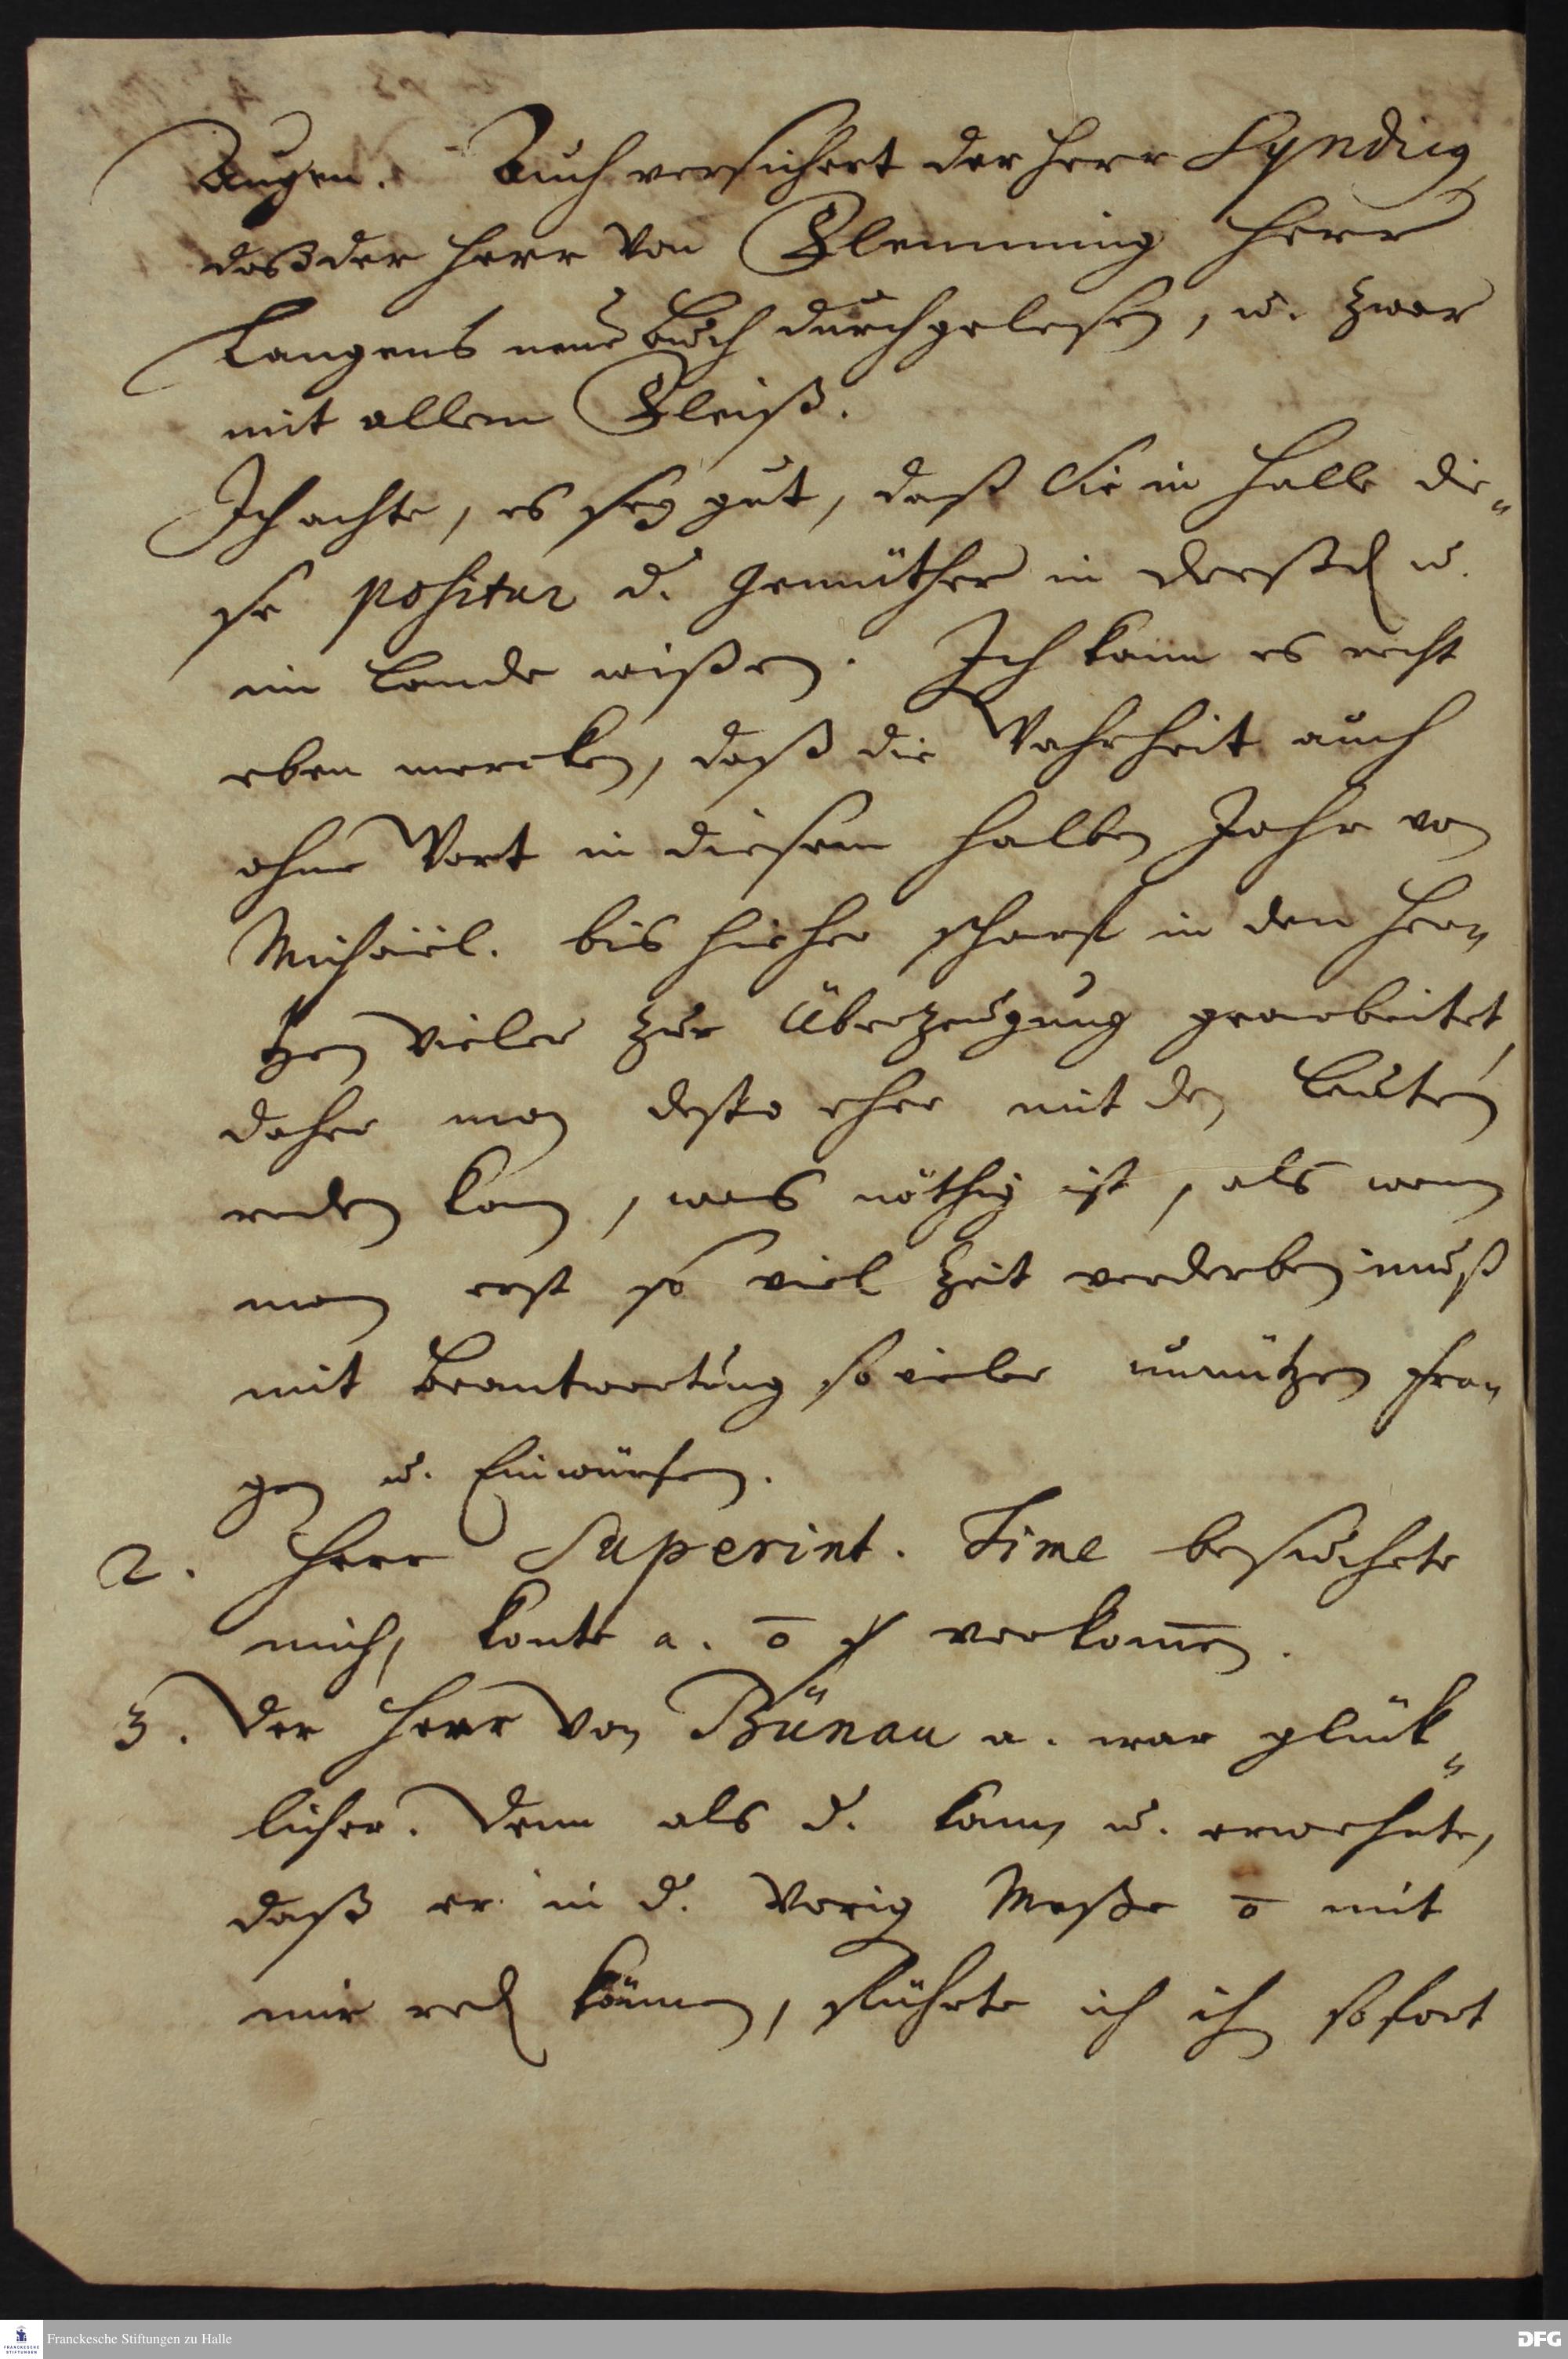 Augen. Auch versichert der Herr Syndicq,
daß der Herr Von Flemming Herr
Langens neue Buch durchgelesen, u. zwar
mit allem Fleiß.
Ich achte, es sey gut, daß Sie in Halle die„
se positur d. Gemüther in Dreßd u.
im Lande wißen. Ich kann es recht
eben mercken, daß die Wahrheit auch
ohne Wort in diesem halben Jahr von
Michaël. bis hieher scharf in den Her„
tzen vieler zur Überzeugung gearbeitet,
daher man desto eher mit den Leuten
reden kan, was nöthig ist, als wenn
man erst so viel Zeit verderben muß
mit Beantwortung so vieler unnützen Fra„
gen u. Einwürfen.
2. Herr Superint. Time besuchete
mich, konte a. o̅ verkom̅en.
3. Der Herr Von Bünau a. war glück„
licher. Denn als d. kam, u. erwehnte,
daß er in d. Vorig Meße o̅ mit
mir red können, führte ich ihn sofort
Franckesche Stiftungen zu Halle
FRANCKESCHE STIFTUNGEN
DFG